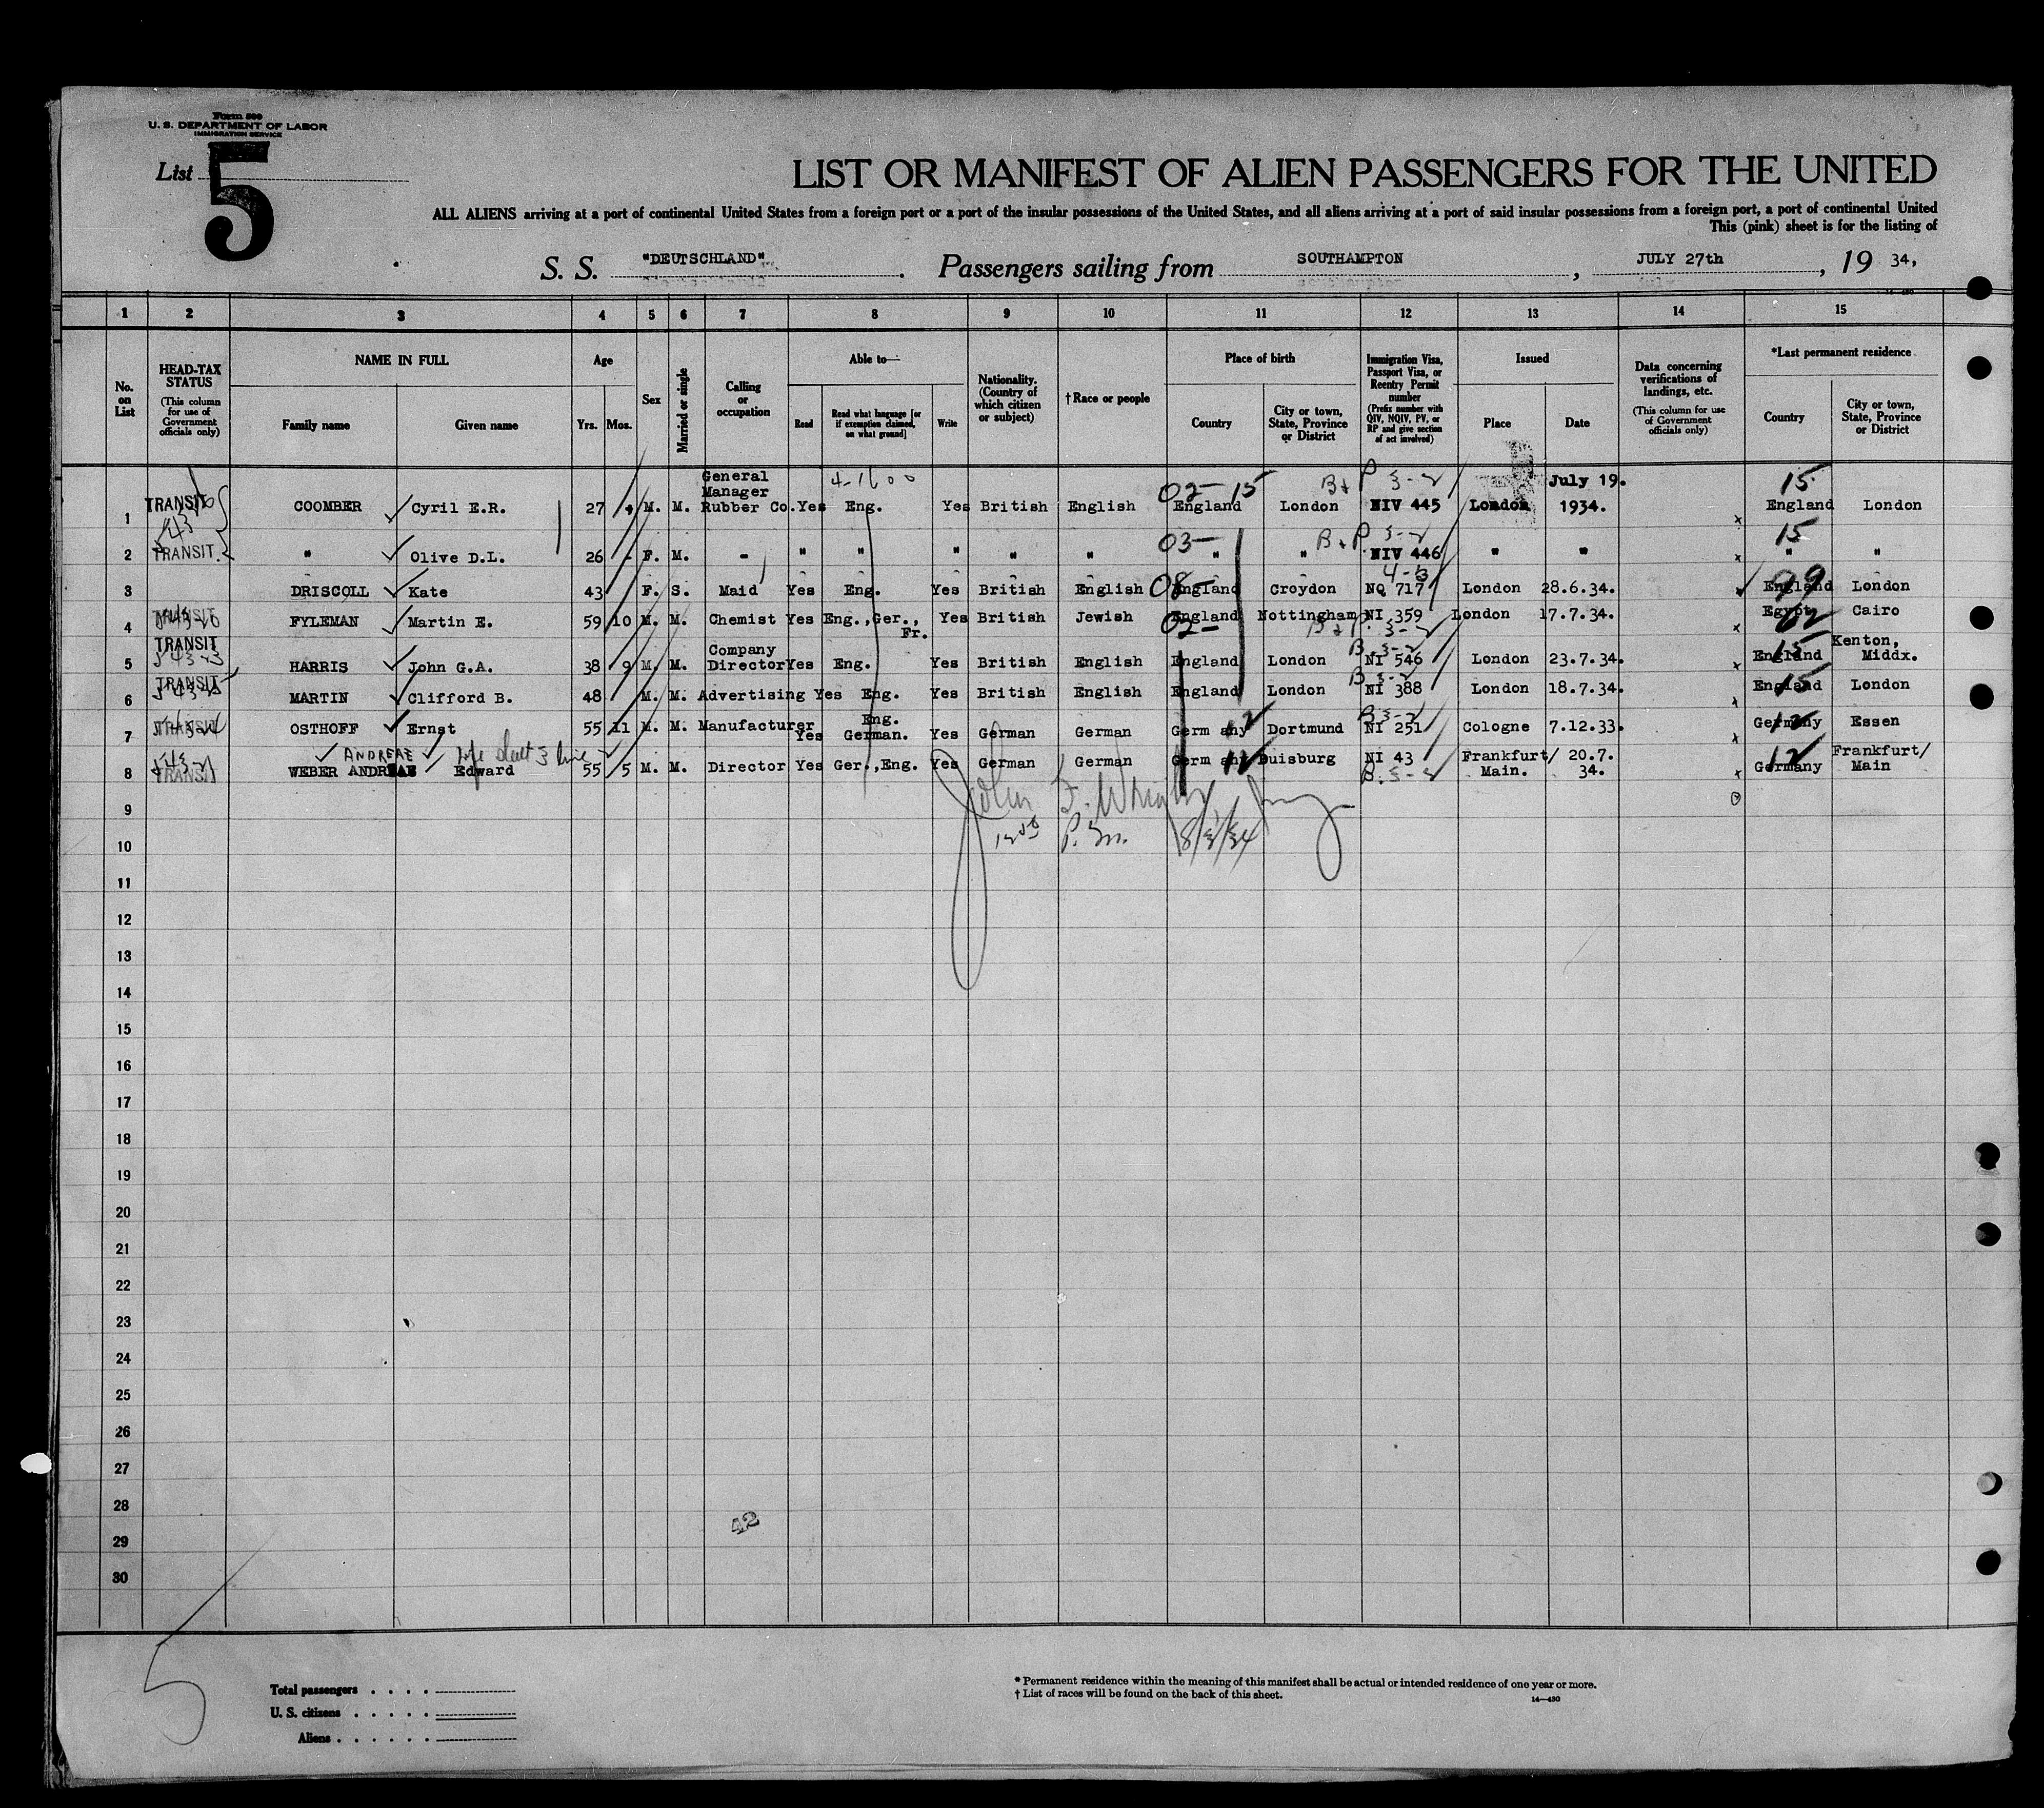 Form 500
U. S. DEPARTMENT OF LABOR
IMMIGRATION SERVICE
List 5
LIST OR MANIFEST OF ALIEN PASSENGERS FOR THE UNITED
ALL ALIENS arriving at a port of continental United States from a foreign port or a port of the insular possessions of the United States, and all aliens arriving at a port of said insular possessions from a foreign port, a port of continental United
This (pink) sheet is for the listing of
S. S. "DEUTSCHLAND" Passengers sailing from SOUTHAMPTON, JULY 27th, 19 34,
1 2 3 4 5 6 7 8 9 10 11 12 13 14 15
No. on List
HEAD-TAX STATUS
(This column for use of Government officials only)
NAME IN FULL
Family name Given name
Age
Yrs. Mos.
Sex
Married or single
Calling or occupation
Able to—
Read Read what language [or if exemption claimed, on what ground] Write
Nationality. (Country of which citizen or subject)
†Race or people
Place of birth
Country City or town, State, Province or District
Immigration Visa, Passport Visa, or Reentry Permit number
(Prefix number with QIV, NQIV, PV, or RP and give section of act involved)
Issued
Place Date
Data concerning verifications of landings, etc.
(This column for use of Government officials only)
*Last permanent residence
Country City or town, State, Province or District
4-1600 02-15 B+P 3-2 15
1 TRANSIT COOMBER Cyril E.R. 27 M. M. General Manager Rubber Co. Yes Eng. Yes British English England London NIV 445 London July 19. 1934. x England London
543
03- B+P 3-2 15
2 TRANSIT. " Olive D.L. 26 - F. M. - " " " " " " " NIV 446 " " x " "
08- 4-3 99
3 DRISCOLL Kate 43 F. S. Maid Yes Eng. Yes British English England Croydon NQ 717 London 28.6.34. England London
4 TRANSIT FYLEMAN Martin E. 59 10 M. M. Chemist Yes Eng.,Ger., Fr. Yes British Jewish England Nottingham NI 359 London 17.7.34. x Egypt Cairo
02- B+P. 3-2 62
5 TRANSIT HARRIS John G.A. 38 9 M. M. Company Director Yes Eng. Yes British English England London NI 546 London 23.7.34. x England Kenton, Middx.
B 3-2 15
6 TRANSIT MARTIN Clifford B. 48 M. M. Advertising Yes Eng. Yes British English England London NI 388 London 18.7.34. x England London
B 3-2 15
7 TRANSIT OSTHOFF Ernst 55 11 M. M. Manufacturer Yes Eng. German. Yes German German Germ any Dortmund NI 251 Cologne 7.12.33. x Germany Essen
12 B 3-2 12
ANDREAE
8 TRANSIT WEBER ANDREAE Edward 55 5 M. M. Director Yes Ger.,Eng. Yes German German Germ any Duisburg NI 43 Frankfurt/ Main. 20.7. 34. x Germany Frankfurt/ Main
12 B. 3-2 12
9
John F.
10
P. M. 8/3/34
11
12
13
14
15
16
17
18
19
20
21
22
23
24
25
26
27
28
42
29
30
5
Total passengers . . . .
U. S. citizens . . . . .
Aliens . . . . . .
* Permanent residence within the meaning of this manifest shall be actual or intended residence of one year or more.
† List of races will be found on the back of this sheet.
14—430